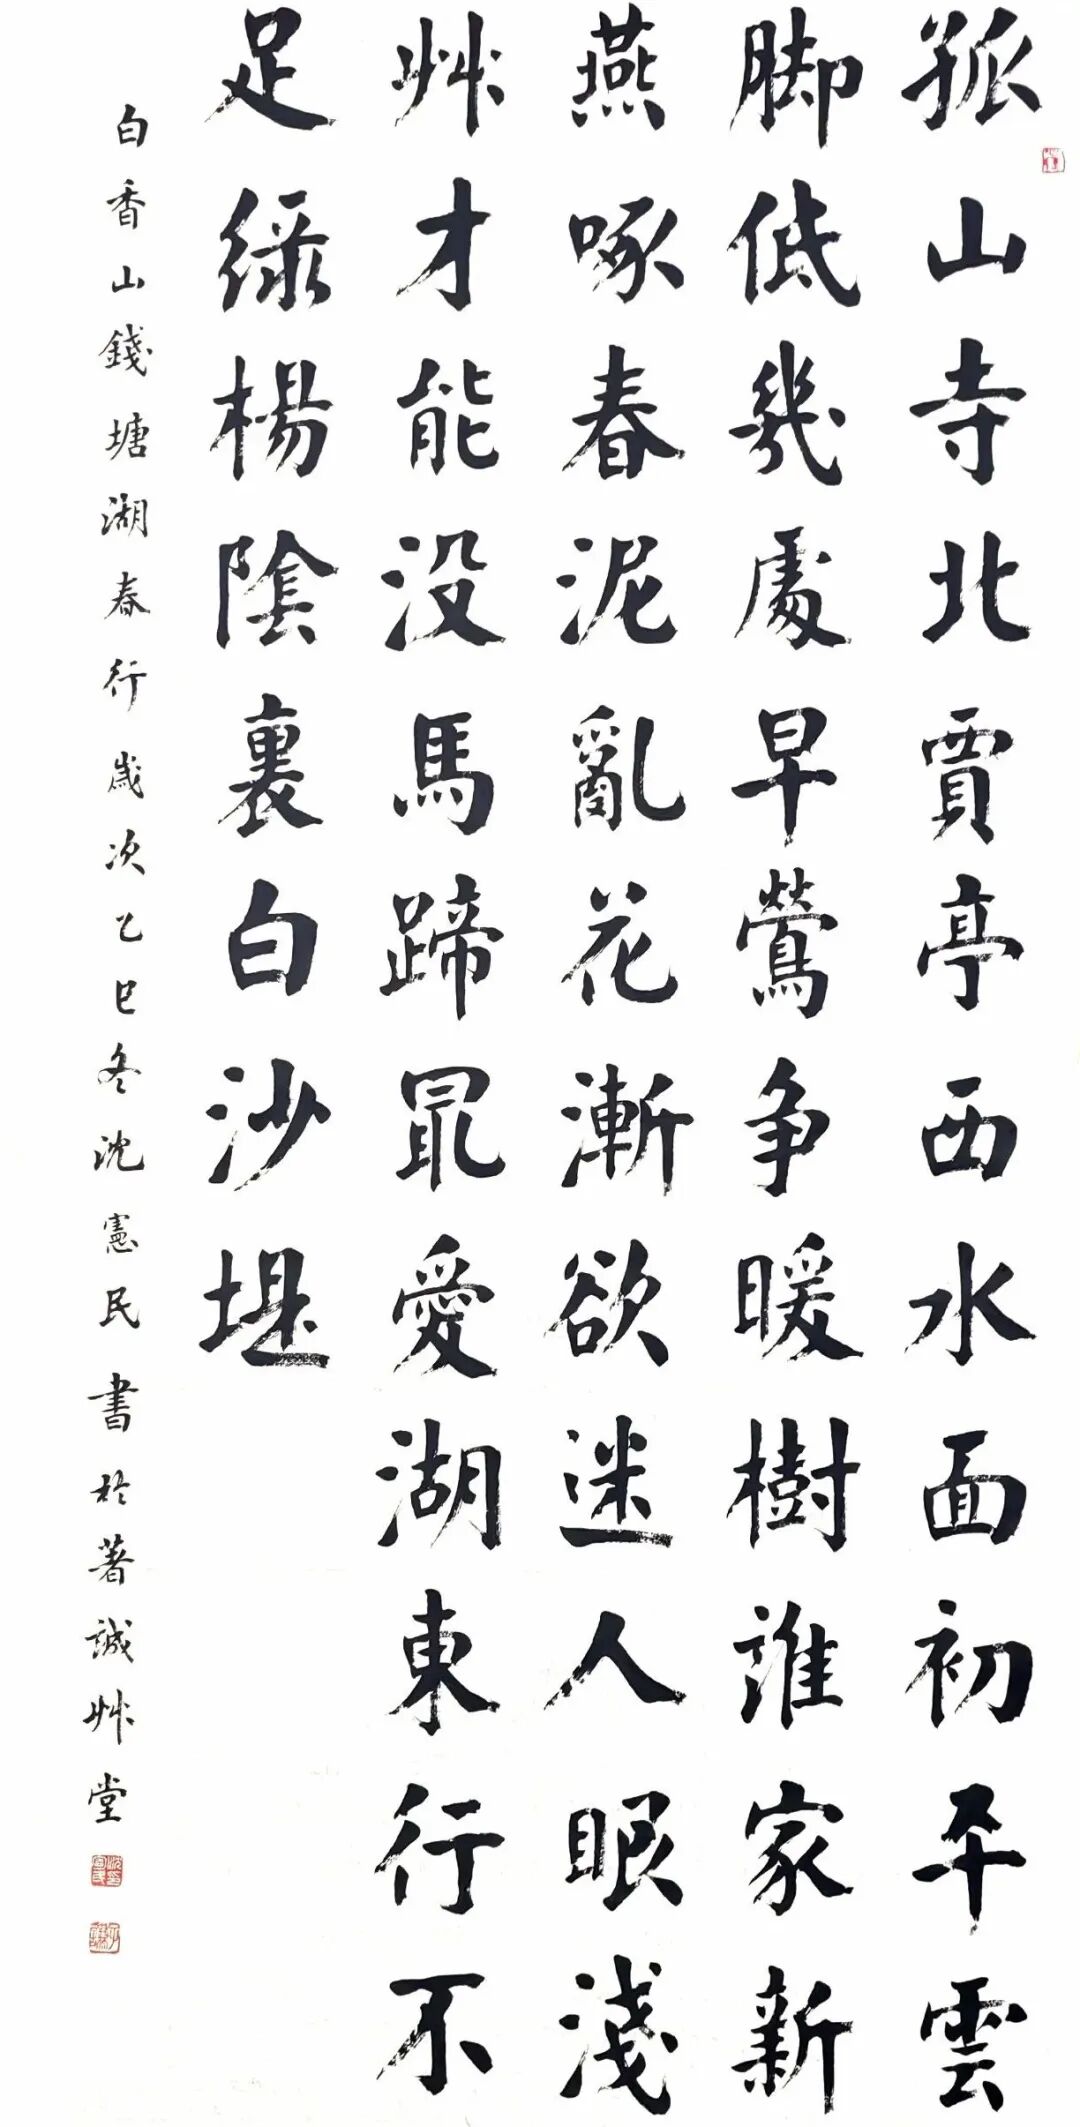 孤山寺北賈亭西水面初平雲
脚低幾處早鶯争暖樹誰家新
燕啄春泥亂花漸欲迷人眼淺
艸才能没馬蹄冣愛湖東行不
足绿楊陰裏白沙堤
白香山錢塘湖春行歲次乙巳冬沈憲民書於著誠艸堂